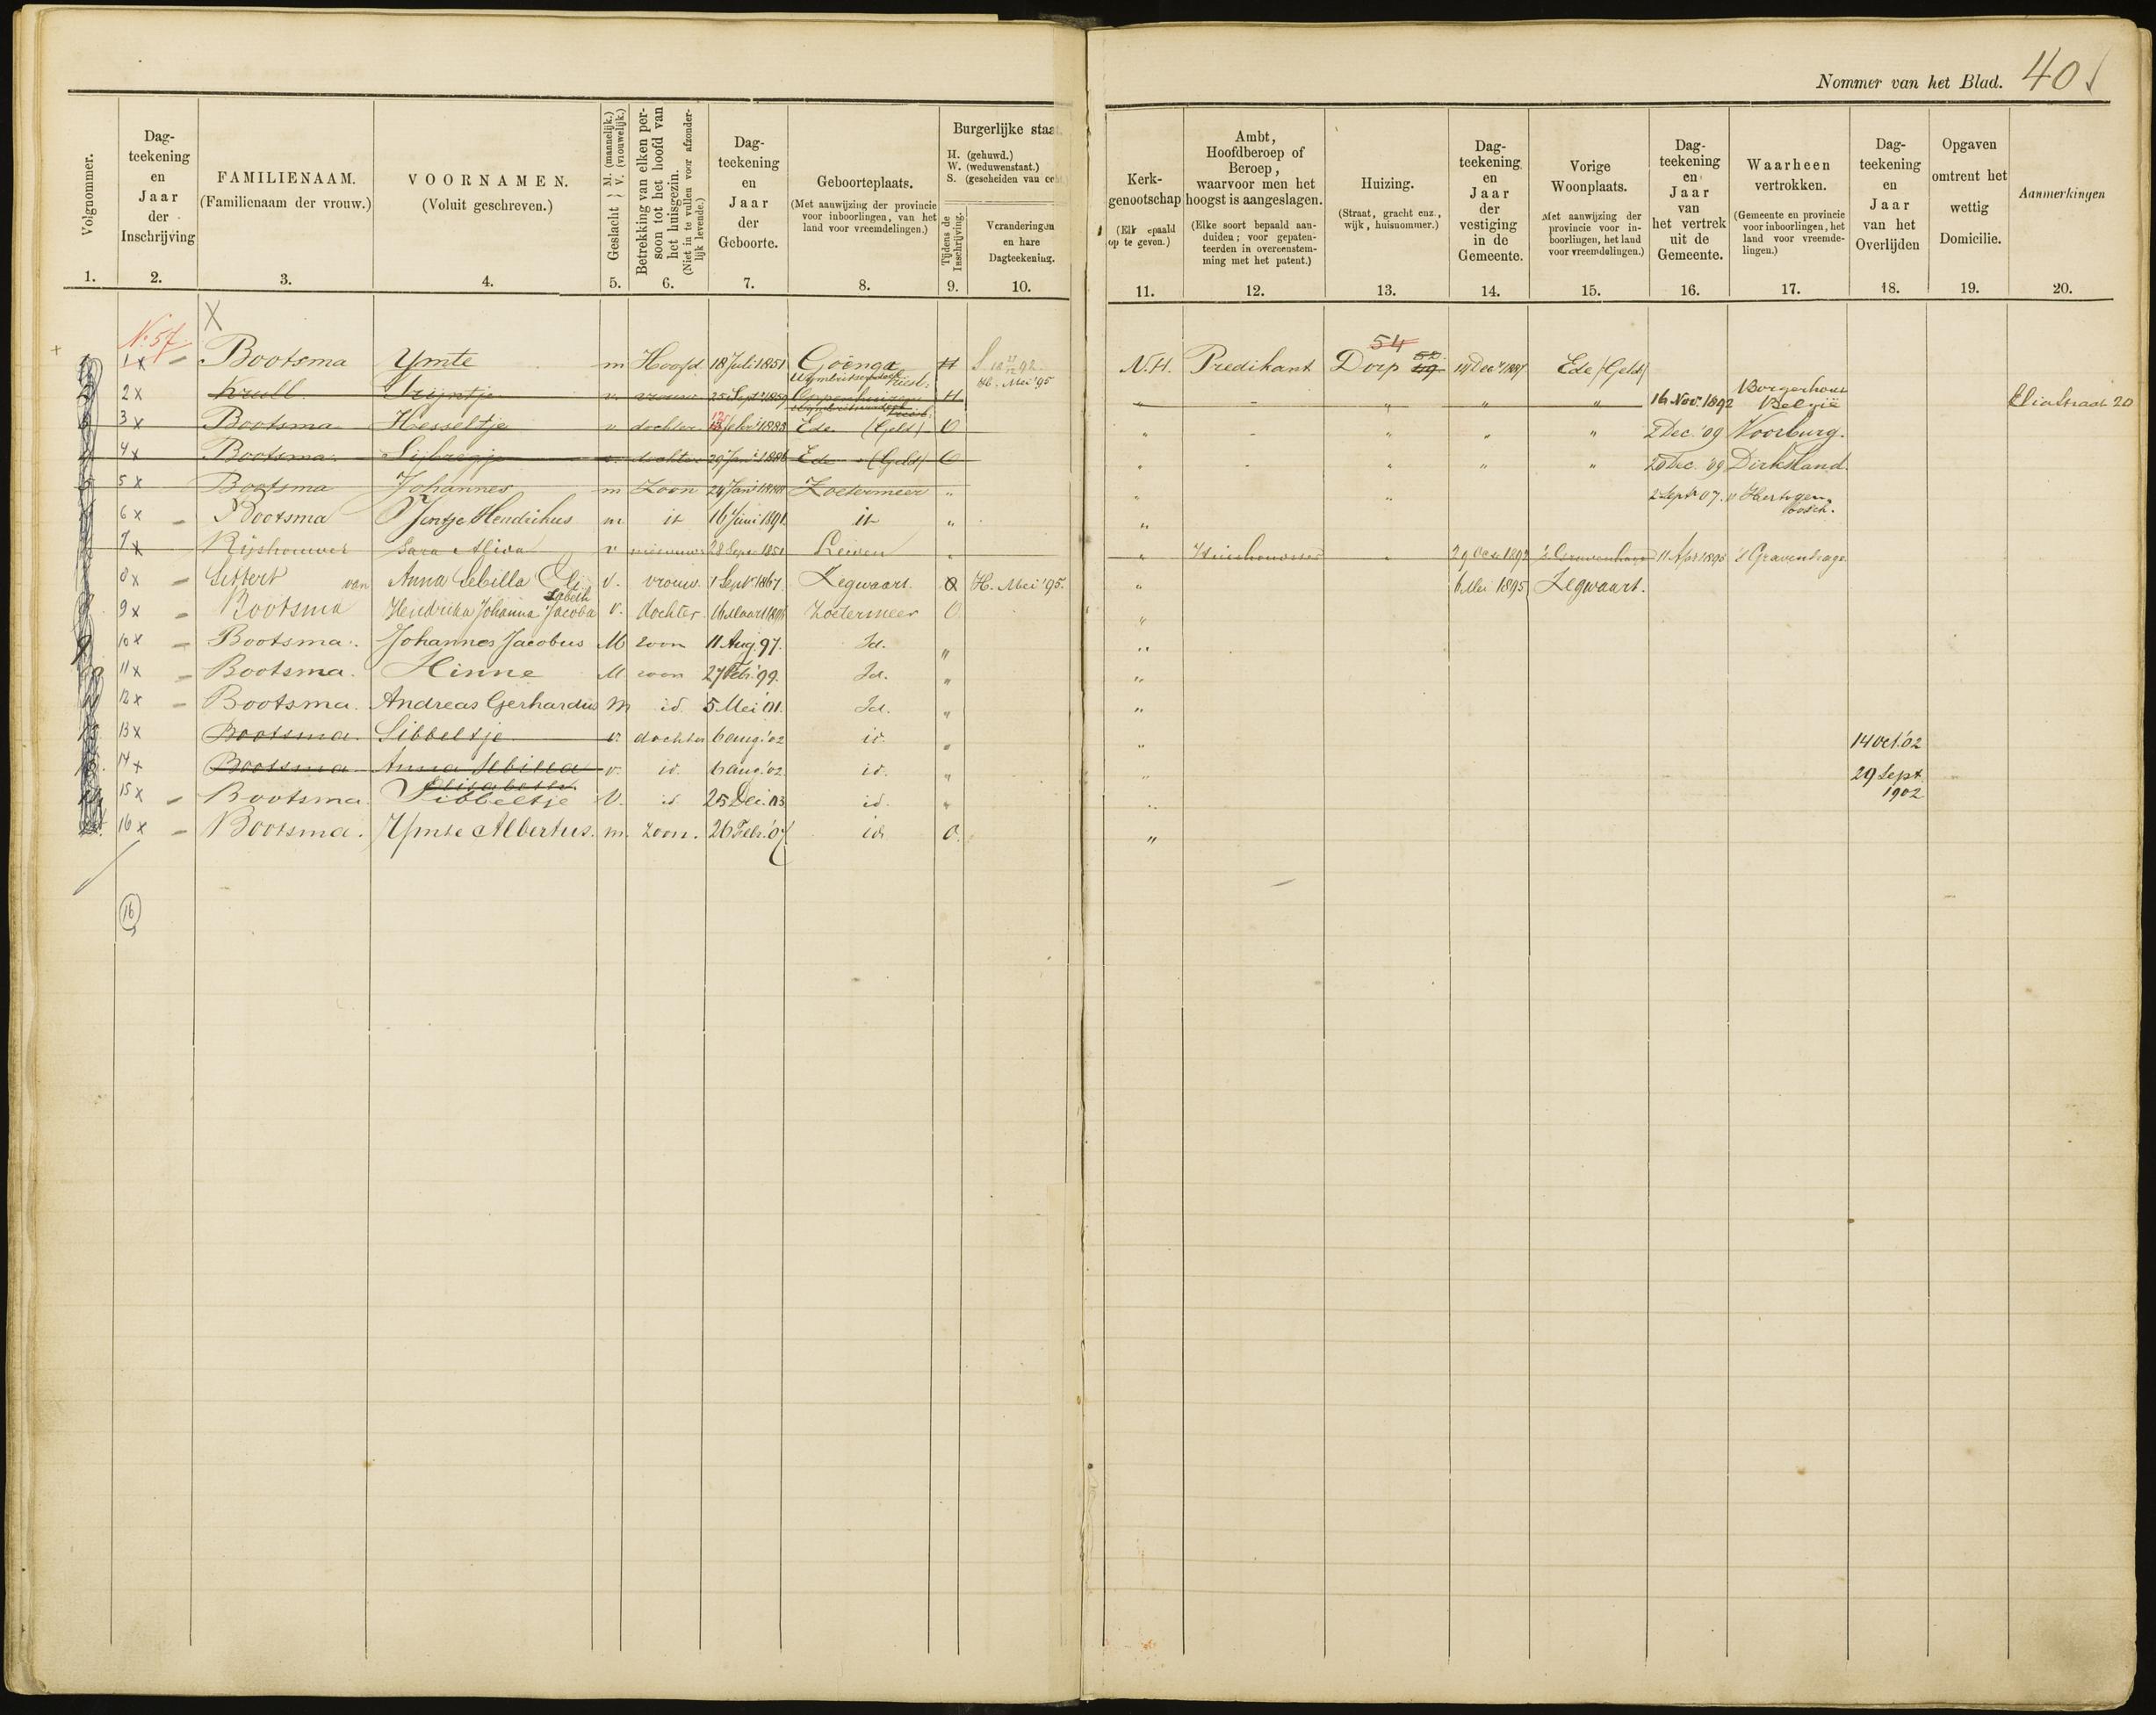 Nommer van het Blad. 40
Volgnommer.
1.
Dag-
teekening
en
Jaar
der
Inschrijving
2.
FAMILIENAAM.
(Familienaam der vrouw.)
3.
VOORNAMEN.
(Voluit geschreven.)
4.
Geslacht M. (mannelijk.) V. (vrouwelijk.)
5.
Betrekking van elken per-
soon tot het hoofd van
het huisgezin.
(Niet in te vullen voor afzonder-
lijk levende.)
6.
Dag-
teekening
en
Jaar
der
Geboorte.
7.
Geboorteplaats.
(Met aanwijzing der provincie
voor inboorlingen, van het
land voor vreemdelingen.)
8.
Burgerlijke staat.
H. (gehuwd.)
W. (weduwenstaat.)
S. (gescheiden van echt.)
Tijdens de
Inschrijving.
9.
Veranderingen
en hare
Dagteekening.
10.
Kerk-
genootschap
(Elk bepaald
op te geven.)
11.
Ambt,
Hoofdberoep of
Beroep,
waarvoor men het
hoogst is aangeslagen.
(Elke soort bepaald aan-
duiden; voor gepaten-
teerden in overeenstem-
ming met het patent.)
12.
Huizing.
(Straat, gracht enz.,
wijk, huisnommer.)
13.
Dag-
teekening
en
Jaar
der
vestiging
in de
Gemeente.
14.
Vorige
Woonplaats.
Met aanwijzing der
provincie voor in-
boorlingen, het land
voor vreemdelingen.)
15.
Dag-
teekening
en
Jaar
van
het vertrek
uit de
Gemeente.
16.
Waarheen
vertrokken.
(Gemeente en provincie
voor inboorlingen, het
land voor vreemde-
lingen.)
17.
Dag-
teekening
en
Jaar
van het
Overlijden
18.
Opgaven
omtrent het
wettig
Domicilie.
19.
Aanmerkingen
20.
X
No. 57
54
1 x Bootsma Ymte m Hoofd 18 Juli 1851 Goënga H S. 92 N.H. Predikant Dorp 14 Decr 1887 Ede (Geld)
H. Mei '95
2 x Krull Trijntje v. vrouw 25 Sept 1859 H " - " " " 16 Nov. 1892 Borgerhout België 20
3 x Bootsma Hesseltje v dochter 1883 Ede (Geld) O " - " " " 2 Dec. '09 Voorburg.
4 x Bootsma Sijbrigje v. dochter 29 Jan 1886 Ede (Geld) O " - " " " 20 Dec. '09 Dirksland.
5 x Bootsma Johannes m Zoon 24 Jan 1888 Zoetermeer " " " 2 Sept 07. 's Hertogen-
bosch.
6 x Bootsma Hendrikus m it 16 Juni 1891 it " "
7 x Rijshouwer Sara v 28 Sept 1851 " " Huishoudster " 29 Oct 1892 's Gravenhage 11 Apr 1896 's Gravenhage
8 x Sittert van Anna Sebilla Eli
sabeth v. vrouw 1 Sept. 1867 Zegwaart. O H. Mei '95. " 6 Mei 1895 Zegwaart.
9 x Bootsma Hendrika Johanna Jacoba v. dochter 16 Maart 1896 Zoetermeer O "
10 x Bootsma. Johannes Jacobus M zoon 11 Aug. 97. Id. " "
11 x Bootsma. Hinne M zoon 27 Feb. '99. Id. " "
12 x Bootsma. Andreas Gerhardus M id. 5 Mei '01. Id. " "
13 x Bootsma. Sibbeltje v. dochter 6 aug. '02 id. " " 14 Oct. '02
14 x Bootsma Anna Sebilla
Elisabeth v. id. 6 aug. '02. id. " " 29 Sept.
1902
15 x Bootsma. Sibbeltje V. id. 25 Dec. '03 id. " "
16 x Bootsma. Ymte Albertus. m. zoon. 26 Febr. '07 id O. "
16